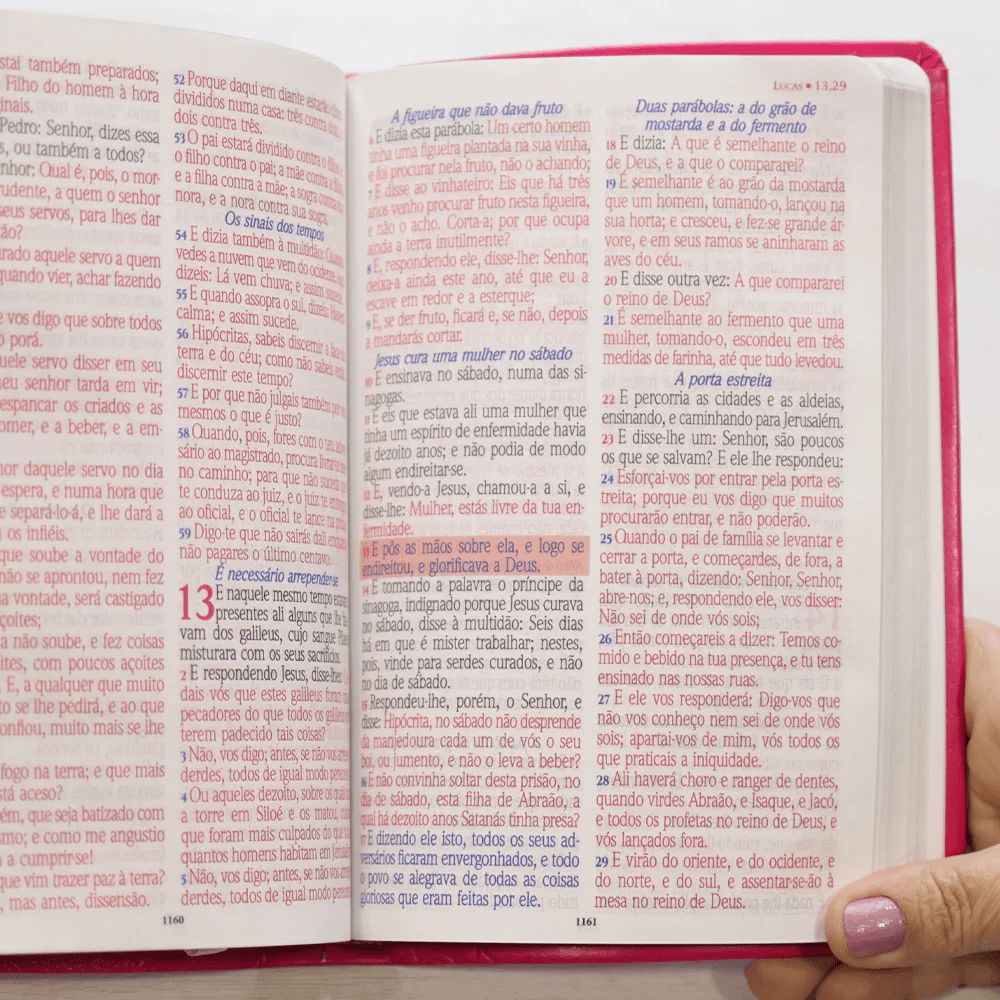 stai também preparados;
Filho do homem à hora
jinais.
Pedro: Senhor, dizes essa
s, ou também a todos?
nhor: Qual é, pois, o mor-
rudente, a quem o senhor
seus servos, para lhes dar
ção?
urado aquele servo a quem
quando vier, achar fazendo
e vos digo que sobre todos
o porá.
uele servo disser em seu
eu senhor tarda em vir;
espancar os criados e as
omer, e a beber, e a em-
nor daquele servo no dia
espera, e numa hora que
e separá-lo-á, e lhe dará a
os infiéis.
que soube a vontade do
não se aprontou, nem fez
a vontade, será castigado
çoites;
a não soube, e fez coisas
ites, com poucos açoites
. E, a qualquer que muito
to se lhe pedirá, e ao que
onfiou, muito mais se lhe
fogo na terra; e que mais
stá aceso?
ém, que seja batizado com
smo; e como me angustio
a cumprir-se!
que vim trazer paz à terra?
, mas antes, dissensão.
52 Porque daqui em diante estarão
divididos numa casa: três contra
dois contra três.
53 O pai estará dividido contra o filho
o filho contra o pai; a mãe contra a
e a filha contra a mãe; a sogra contra
nora, e a nora contra sua sogra.
Os sinais dos tempos
54 E dizia também à multidão: Quando
vedes a nuvem que vem do ocidente,
dizeis: Lá vem chuva; e assim sucede.
55 E quando assopra o sul, dizeis:
calma; e assim sucede.
56 Hipócritas, sabeis discernir a face da
terra e do céu; como não sabeis
discernir este tempo?
57 E por que não julgais também por
mesmos o que é justo?
58 Quando, pois, fores com o teu
sário ao magistrado, procura livrar-te
no caminho; para que não suceda
te conduza ao juiz, e o juiz te entregue
ao oficial, e o oficial te lance na
59 Digo-te que não sairás dali enquanto
não pagares o último centavo.
É necessário arrepender-se
13 E naquele mesmo tempo
presentes ali alguns que lhe
vam dos galileus, cujo sangue
misturara com os seus sacrifícios.
2 E respondendo Jesus, disse-lhes:
dais vós que estes galileus foram
pecadores do que todos os galileus
terem padecido tais coisas?
3 Não, vos digo; antes, se não vos
derdes, todos de igual modo
4 Ou aqueles dezoito, sobre os quais
a torre em Siloé e os matou,
que foram mais culpados do que
quantos homens habitam em
5 Não, vos digo; antes, se não vos
derdes, todos de igual modo
1160
LUCAS ▪ 13.29
A figueira que não dava fruto
6 E dizia esta parábola: Um certo homem
tinha uma figueira plantada na sua vinha,
e foi procurar nela fruto, não o achando;
7 E disse ao vinhateiro: Eis que há três
anos venho procurar fruto nesta figueira,
e não o acho. Corta-a; por que ocupa
ainda a terra inutilmente?
8 E, respondendo ele, disse-lhe: Senhor,
deixa-a ainda este ano, até que eu a
escave em redor e a esterque;
9 E, se der fruto, ficará e, se não, depois
a mandarás cortar.
Jesus cura uma mulher no sábado
10 E ensinava no sábado, numa das si-
nagogas.
11 E eis que estava ali uma mulher que
tinha um espírito de enfermidade havia
já dezoito anos; e não podia de modo
algum endireitar-se.
12 E, vendo-a Jesus, chamou-a a si, e
disse-lhe: Mulher, estás livre da tua en-
fermidade.
13 E pôs as mãos sobre ela, e logo se
endireitou, e glorificava a Deus.
14 E tomando a palavra o príncipe da
sinagoga, indignado porque Jesus curava
no sábado, disse à multidão: Seis dias
há em que é mister trabalhar; nestes,
pois, vinde para serdes curados, e não
no dia de sábado.
15 Respondeu-lhe, porém, o Senhor, e
disse: Hipócrita, no sábado não desprende
da manjedoura cada um de vós o seu
boi, ou jumento, e não o leva a beber?
16 E não convinha soltar desta prisão, no
dia de sábado, esta filha de Abraão, a
qual há dezoito anos Satanás tinha presa?
17 E dizendo ele isto, todos os seus ad-
versários ficaram envergonhados, e todo
o povo se alegrava de todas as coisas
gloriosas que eram feitas por ele.
Duas parábolas: a do grão de
mostarda e a do fermento
18 E dizia: A que é semelhante o reino
de Deus, e a que o compararei?
19 É semelhante é ao grão da mostarda
que um homem, tomando-o, lançou na
sua horta; e cresceu, e fez-se grande ár-
vore, e em seus ramos se aninharam as
aves do céu.
20 E disse outra vez: A que compararei
o reino de Deus?
21 É semelhante ao fermento que uma
mulher, tomando-o, escondeu em três
medidas de farinha, até que tudo levedou.
A porta estreita
22 E percorria as cidades e as aldeias,
ensinando, e caminhando para Jerusalém.
23 E disse-lhe um: Senhor, são poucos
os que se salvam? E ele lhe respondeu:
24 Esforçai-vos por entrar pela porta es-
treita; porque eu vos digo que muitos
procurarão entrar, e não poderão.
25 Quando o pai de família se levantar e
cerrar a porta, e começardes, de fora, a
bater à porta, dizendo: Senhor, Senhor,
abre-nos; e, respondendo ele, vos disser:
Não sei de onde vós sois;
26 Então começareis a dizer: Temos co-
mido e bebido na tua presença, e tu tens
ensinado nas nossas ruas.
27 E ele vos responderá: Digo-vos que
não vos conheço nem sei de onde vós
sois; apartai-vos de mim, vós todos os
que praticais a iniquidade.
28 Ali haverá choro e ranger de dentes,
quando virdes Abraão, e Isaque, e Jacó,
e todos os profetas no reino de Deus, e
vós lançados fora.
29 E virão do oriente, e do ocidente, e
do norte, e do sul, e assentar-se-ão à
mesa no reino de Deus.
1161